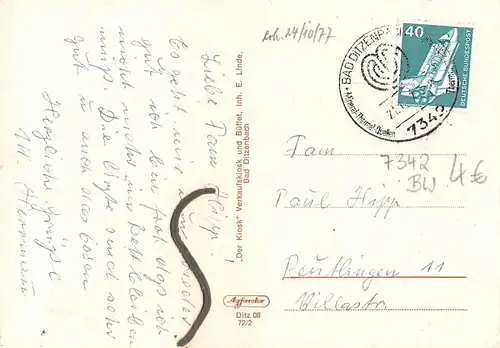 erh. 24/10/77
Liebe Fam. Hipp!
Es geht mir wieder
gut ich bin froh daß ich
nicht mehr im Bett bleiben
muß. Die Ärzte sind sehr
gut u. auch das Essen
Herzliche Grüße
Herrmann
"Der Kiosk" Verkaufskiosk und Büffet, Inh. E. Linde.
Bad Ditzenbach
Agfacolor
Ditz 08
72/2
BAD DITZENBACH
Mineral-Thermal-Quellen
7342
40
DEUTSCHE BUNDESPOST
Fam
Paul Hipp
Reutlingen 11
Villastr.
7342
BW
4 €